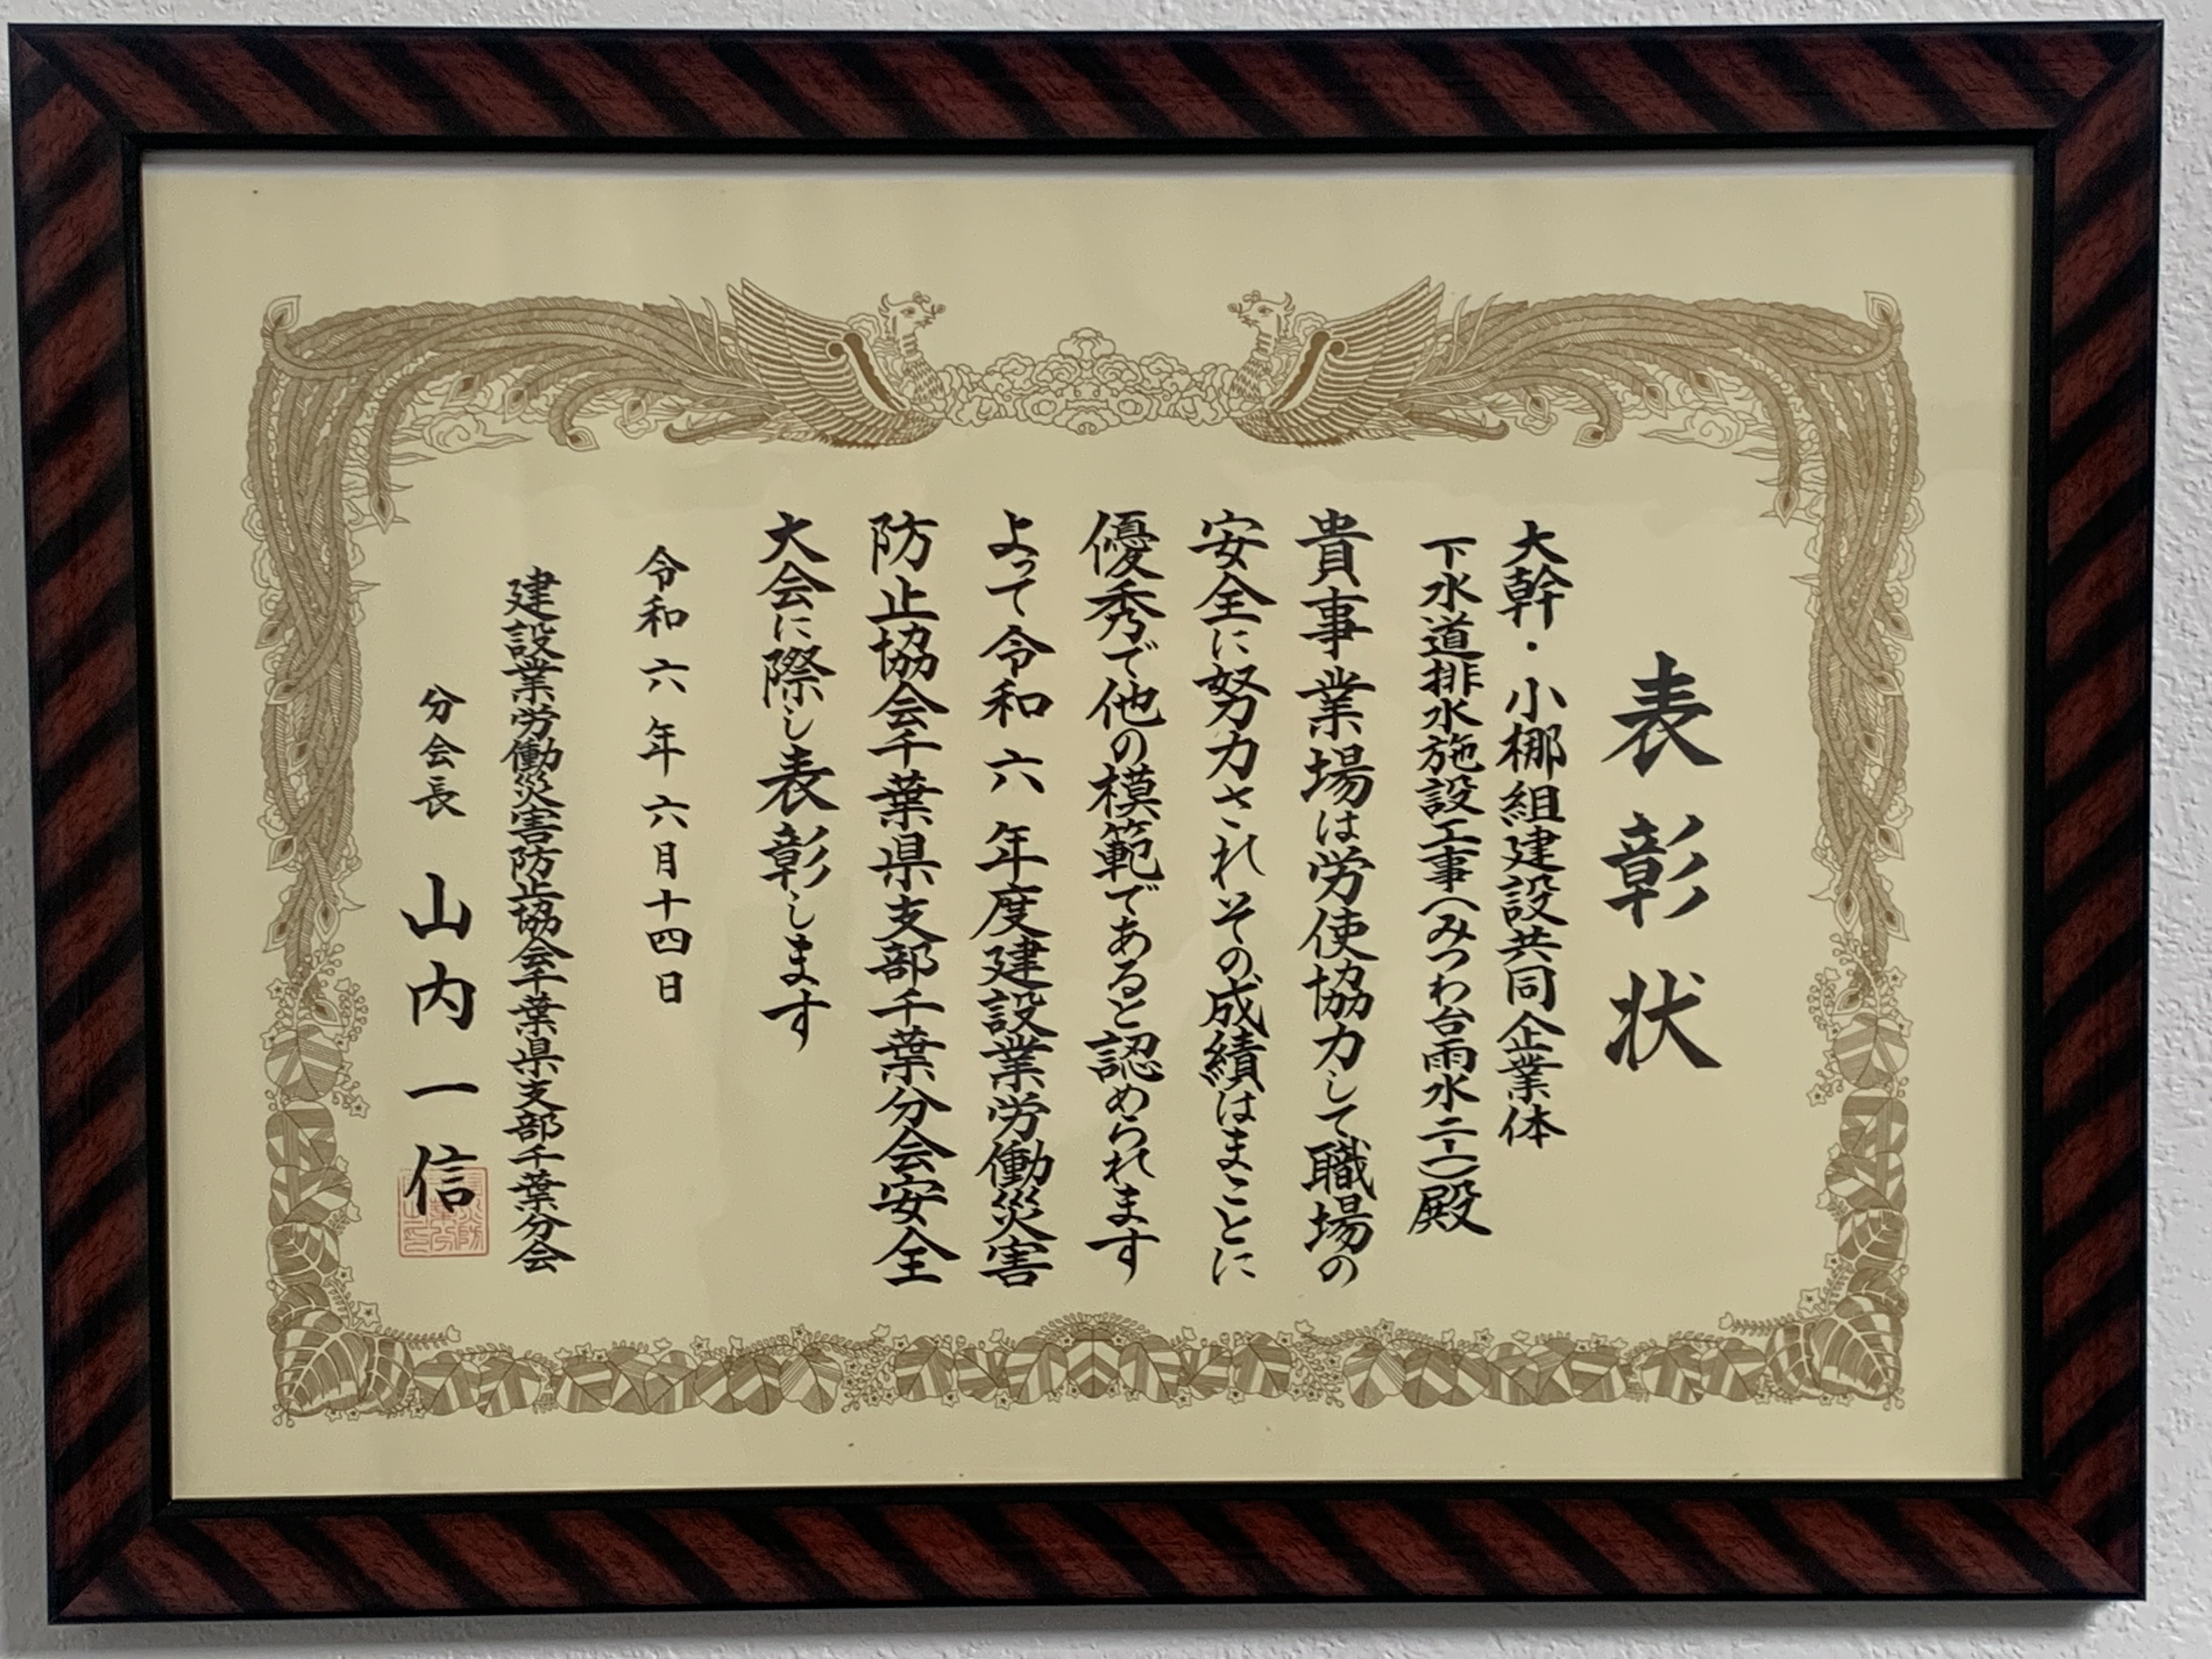 表彰状
大幹・小梛組建設共同企業体
下水道排水施設工事(みつわ台雨水二ー一)殿
貴事業場は労使協力して職場の
安全に努力されその成績はまことに
優秀で他の模範であると認められます
よって令和六年度建設業労働災害
防止協会千葉県支部千葉分会安全
大会に際し表彰します
令和六年六月十四日
建設業労働災害防止協会千葉県支部千葉分会
分会長 山内一信